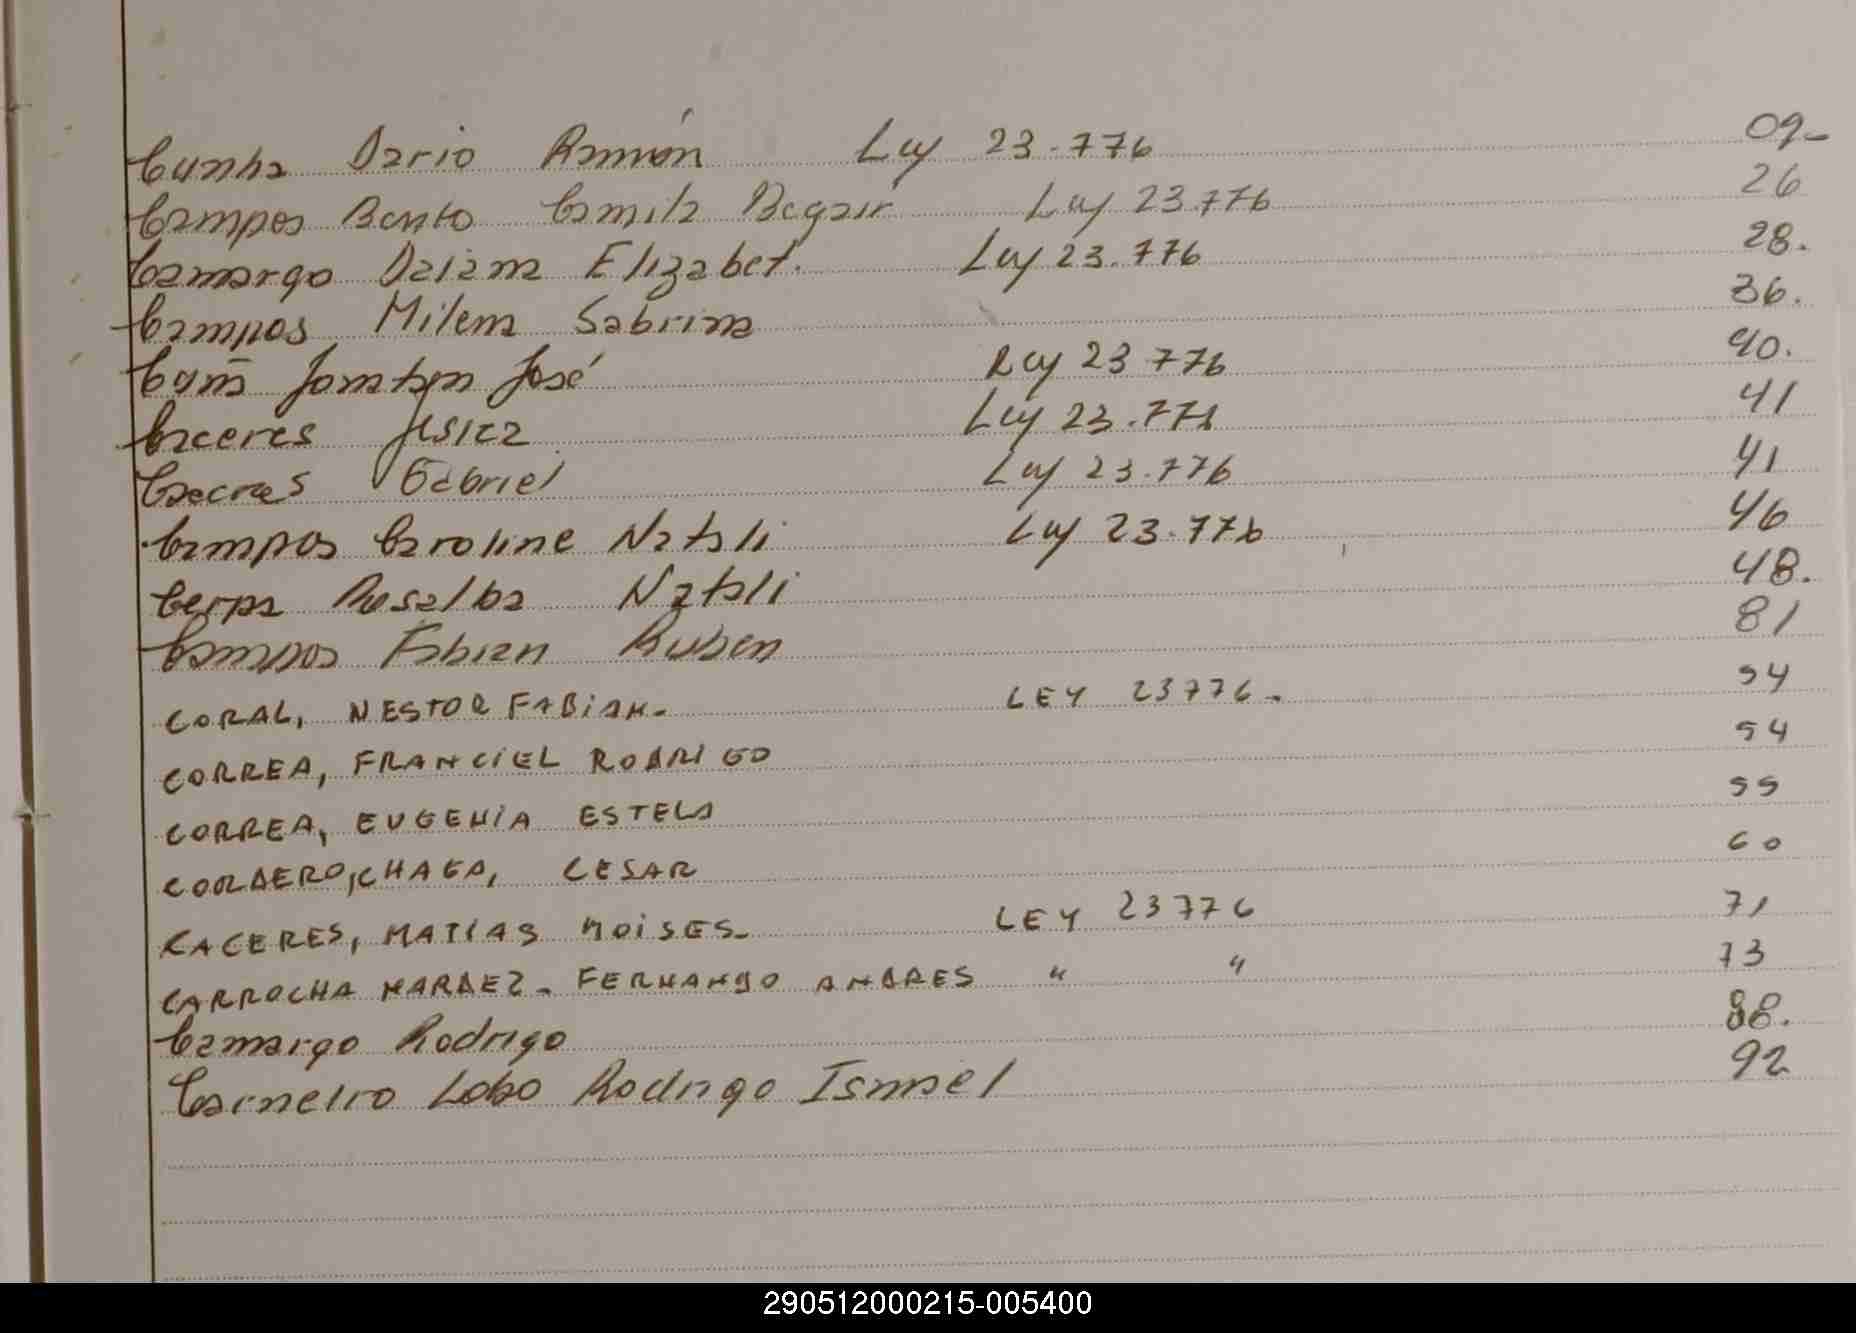 Cunha Dario Ramón Ley 23.776 09-
Campos Bento Camila Begair Ley 23.776 26
Camargo Daiana Elizabet. Ley 23.776 28.
Campos Milena Sabrina 36.
Cuña Jonatan José Ley 23 776 40.
Caceres Jesica Ley 23.776 41
Caceres Gabriel Ley 23.776 41
Campos Caroline Natali Ley 23.776 46
Cerpa Rosalba Natali 48.
Campos Fabian Ruben 81
CORAL, NESTOR FABIAN. LEY 23776. 54
CORREA, FRANCIEL RODRIGO 54
CORREA, EUGENIA ESTELA 55
CORDERO, CHAGA, CESAR 60
CACERES, MATIAS MOISES. LEY 23776 71
CARROCHA NARDEZ. FERNANDO ANDRES " " 73
Camargo Rodrigo 88.
Carneiro Lobo Rodrigo Ismael 92
290512000215-005400